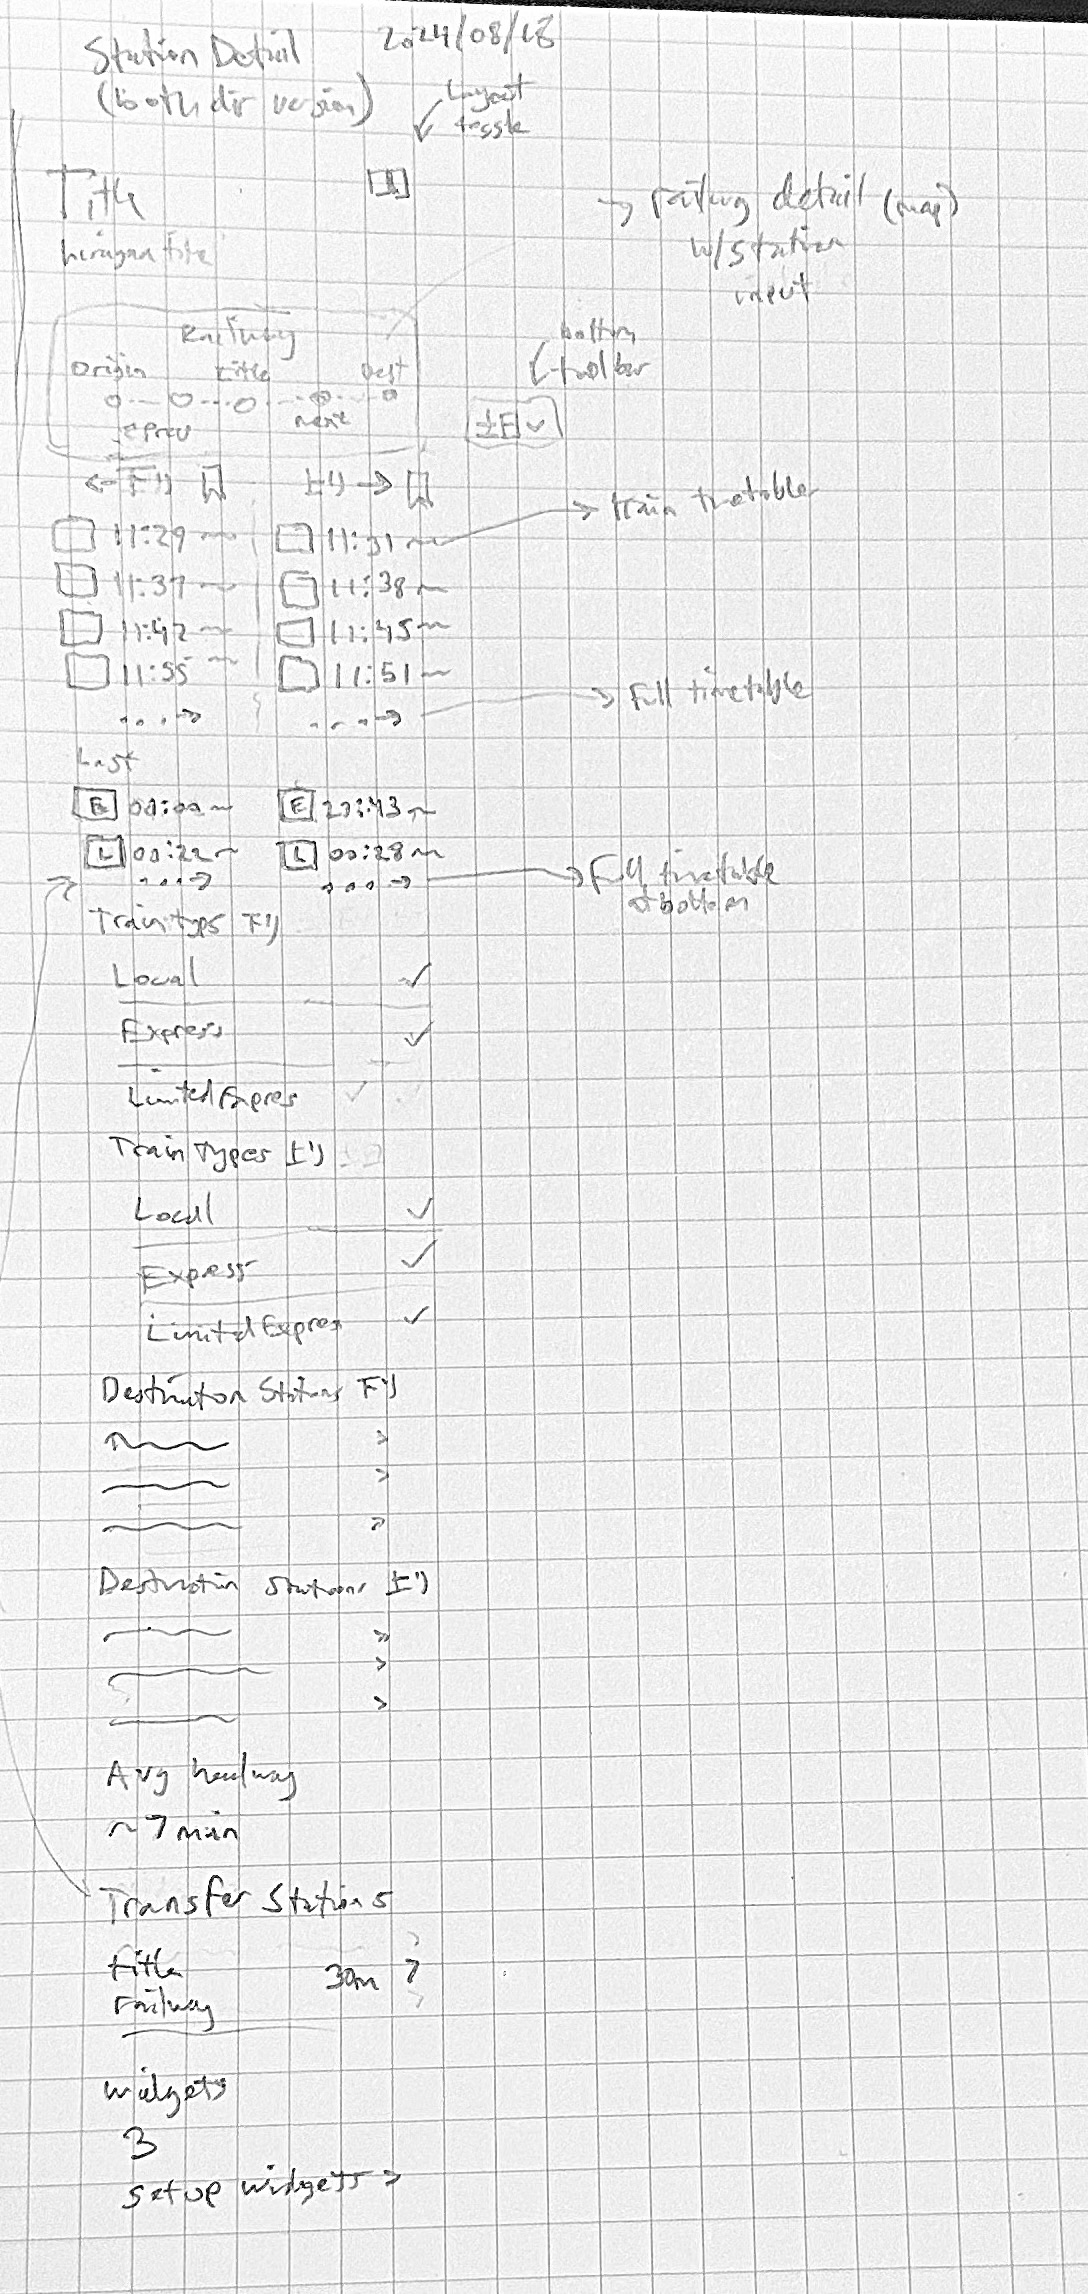 Station Detail 2024/08/18
(both dir version)
Layout
toggle
Title
hiragana title
→ railway detail (map)
w/station
input
Railway
Origin title Dest
prev next
bottom
toolbar
土日
← 下り 上り →
11:29 11:31 → train timetable
11:37 11:38
11:42 11:45
11:55 11:51
...→ ...→ → Full timetable
Last
E 00:00 E 23:43
L 00:22 L 00:28
...→ ...→ → Full timetable
at bottom
Train types 下り
Local ✓
Express ✓
Limited Expres ✓
Train Types 上り
Local ✓
Express ✓
Limited Expres ✓
Destination Stations 下り
>
>
>
Destination Stations 上り
>
>
>
Avg headway
~7 min
Transfer Stations
title 30m >
railway
widgets
3
setup widgets >